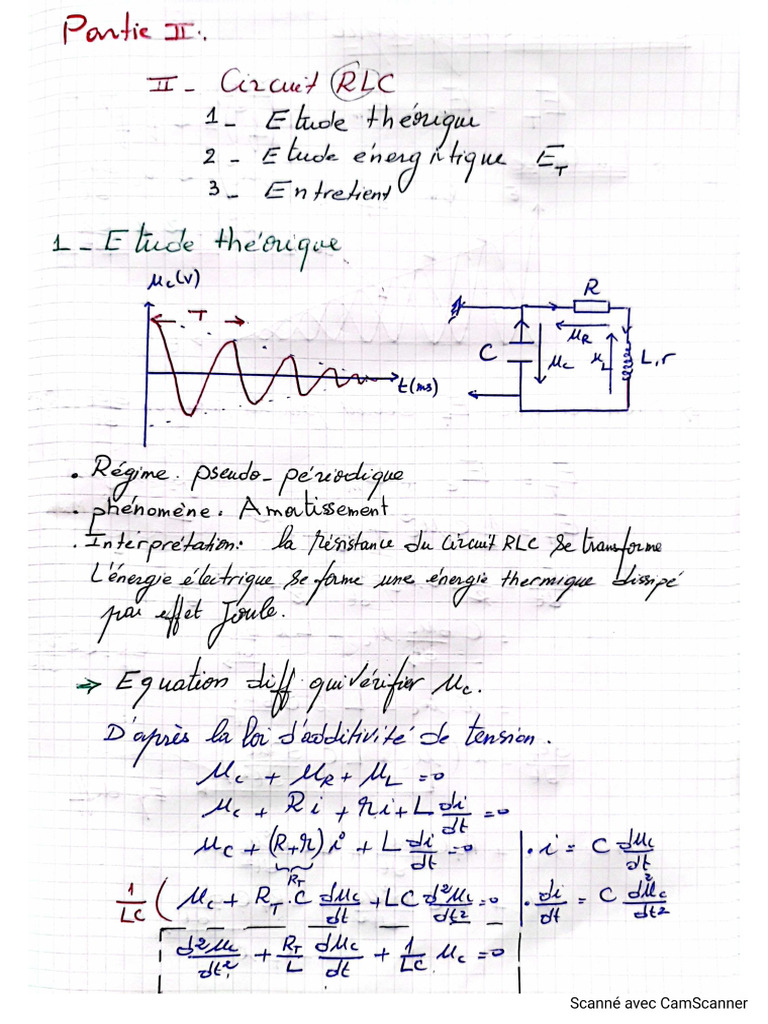 Partie II.
II - Circuit RLC
1 - Etude théorique
2 - Etude énergitique E_T
3 - Entretient
1 - Etude théorique
u_c(v)
T
t(ms)
R
u_R
C
u_c
u_L
L,r
• Régime. pseudo-périodique
• phénomène. Amortissement
• Interprétation: la résistance du circuit RLC se transforme
L'énergie électrique se forme une énergie thermique dissipé
par effet Joule.
→ Equation diff qui vérifier u_c.
D'après la loi d'additivité de tension.
u_c + u_R + u_L = 0
u_c + Ri + ri + L di/dt = 0
u_c + (R+r)i + L di/dt = 0
R_T
• i = C du_c/dt
1/LC ( u_c + R_T.C du_c/dt + LC d²u_c/dt² = 0
• di/dt = C d²u_c/dt²
d²u_c/dt² + R_T/L du_c/dt + 1/LC u_c = 0
Scanné avec CamScanner